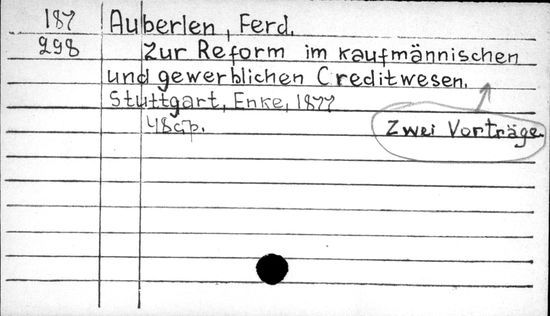 187 Auberlen, Ferd.
298 Zur Reform im kaufmännischen
und gewerblichen Creditwesen.
Stuttgart, Enke, 1877
Zwei Vorträge.
48 p.